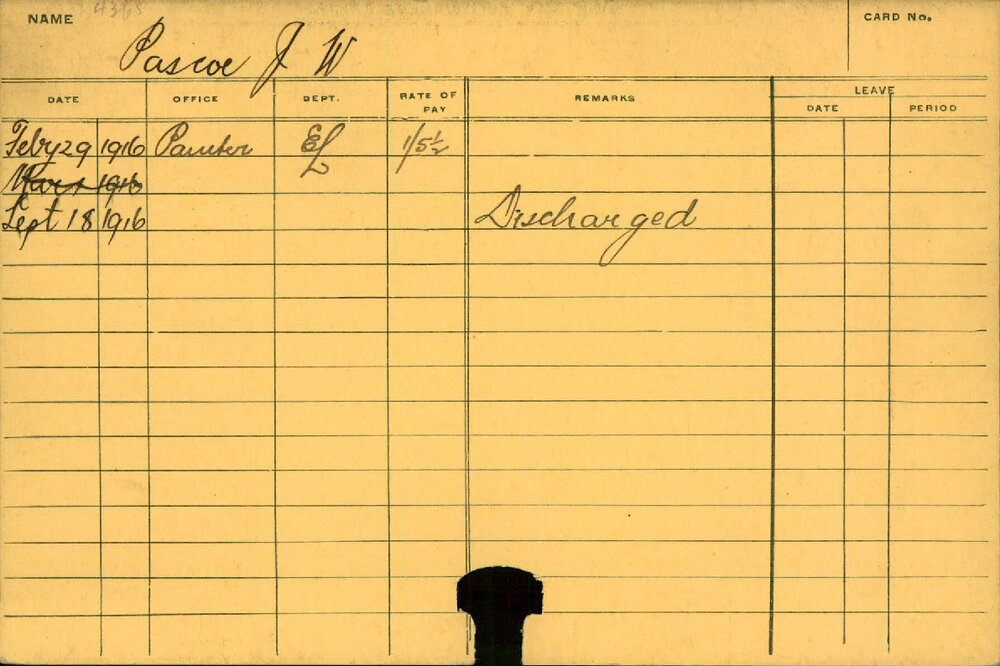 NAME 4365 CARD No.
Pascoe J W
DATE OFFICE DEPT. RATE OF PAY REMARKS LEAVE
DATE PERIOD
Feby 29 1916 Painter EL 1/5½
Mar 1 1916
Sept 18 1916 Discharged